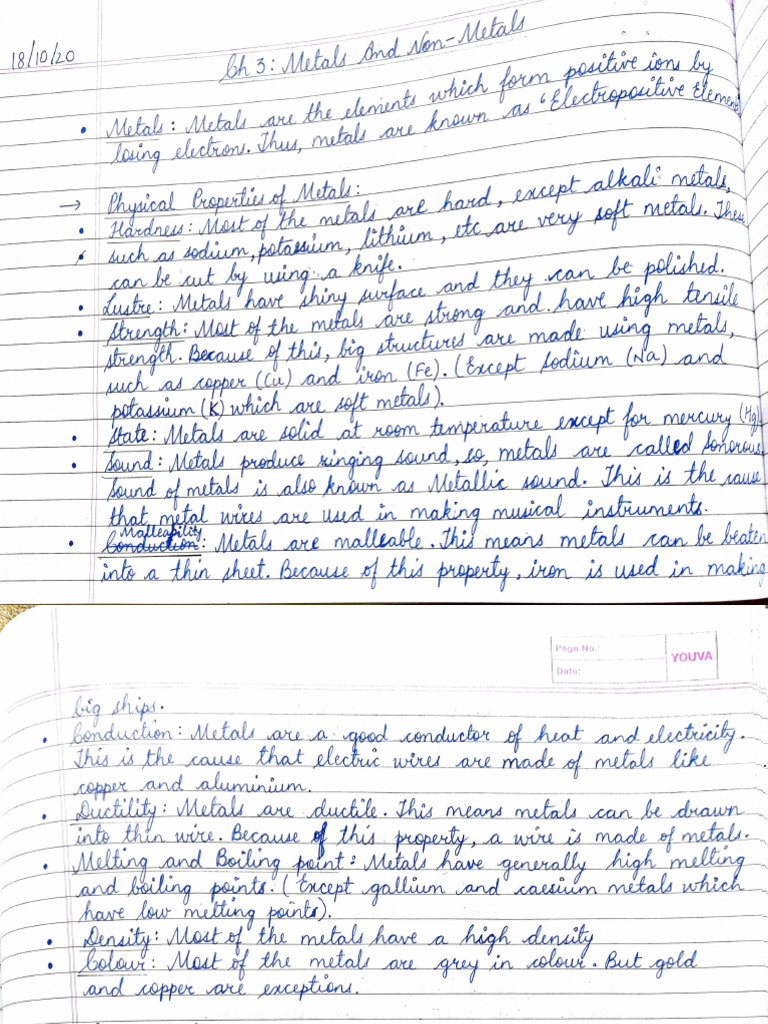 18/10/20
Ch 3: Metals And Non-Metals
• Metals: Metals are the elements which form positive ions by
losing electrons. Thus, metals are known as 'Electropositive Element
→ Physical Properties of Metals:
• Hardness: Most of the metals are hard, except alkali metals,
such as sodium, potassium, lithium, etc are very soft metals. These
can be cut by using a knife.
• Lustre: Metals have shiny surface and they can be polished.
• Strength: Most of the metals are strong and have high tensile
strength. Because of this, big structures are made using metals,
such as copper (Cu) and iron (Fe). (Except Sodium (Na) and
potassium (K) which are soft metals).
• State: Metals are solid at room temperature except for mercury (Hg)
• Sound: Metals produce ringing sound, so, metals are called Sonorous.
Sound of metals is also known as Metallic sound. This is the cause
that metal wires are used in making musical instruments.
Malleability
• Conduction: Metals are malleable. This means metals can be beaten
into a thin sheet. Because of this property, iron is used in making
Page No.:
Date:
YOUVA
big ships.
• Conduction: Metals are a good conductor of heat and electricity.
This is the cause that electric wires are made of metals like
copper and aluminium.
• Ductility: Metals are ductile. This means metals can be drawn
into thin wire. Because of this property, a wire is made of metals.
• Melting and Boiling point: Metals have generally high melting
and boiling points. (Except gallium and caesium metals which
have low melting points).
• Density: Most of the metals have a high density
• Colour: Most of the metals are grey in colour. But gold
and copper are exceptions.